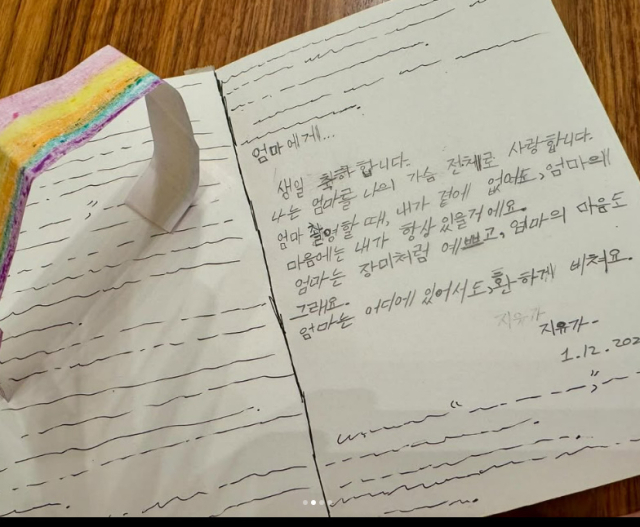 엄마에게...
생일 축하 합니다.
나는 엄마를 나의 가슴 전체로 사랑합니다.
엄마 촬영할 때, 내가 곁에 없어도, 엄마의
마음에는 내가 항상 있을거에요.
엄마는 장미처럼 예쁘고, 엄마의 마음도
그래요.
엄마는 어디에 있어서도, 환하게 비쳐요.
지유가
지유가-
1.12.202